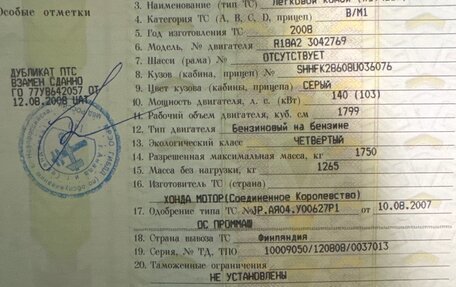 Особые отметки
ДУБЛИКАТ ПТС
ВЗАМЕН СДАННО
ГО 77У8642057 ОТ
12.08.2008 ЦАТ
3. Наименование (тип ТС) ЛЕГКОВОЙ
4. Категория ТС (А, В, С, D, прицеп) B/M1
5. Год изготовления ТС 2008
6. Модель, № двигателя R18A2 3042769
7. Шасси (рама) № ОТСУТСТВУЕТ
8. Кузов (кабина, прицеп) № SHHFK28608U036076
9. Цвет кузова (кабины, прицепа) СЕРЫЙ
10. Мощность двигателя, л. с. (кВт) 140 (103)
11. Рабочий объем двигателя, куб. см 1799
12. Тип двигателя Бензиновый на бензине
13. Экологический класс ЧЕТВЕРТЫЙ
14. Разрешенная максимальная масса, кг 1750
15. Масса без нагрузки, кг 1265
16. Изготовитель ТС (страна)
ХОНДА МОТОР(Соединенное Королевство)
17. Одобрение типа ТС №JP.АЯ04.У00627P1 от 10.08.2007
ОС ПРОММАШ
18. Страна вывоза ТС Финляндия
19. Серия, № ТД, ТПО 10009050/120808/0037013
20. Таможенные ограничения
НЕ УСТАНОВЛЕНЫ